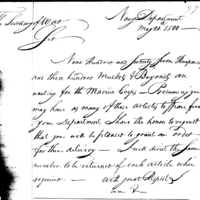 The Secretary of War
Navy Department
May 20. 1800
Sir
Nine Hundred and Seventy Seven Knapsacks
and three hundred Muskets & Bayonets are
wanting for the Marine Corps - Presuming you
may have as many of these articles to spare from
your Department, I have the honor to request
that you will be pleased to point an order
for their delivery - I will direct the same
number to be returned of each article when
required - with great Respect